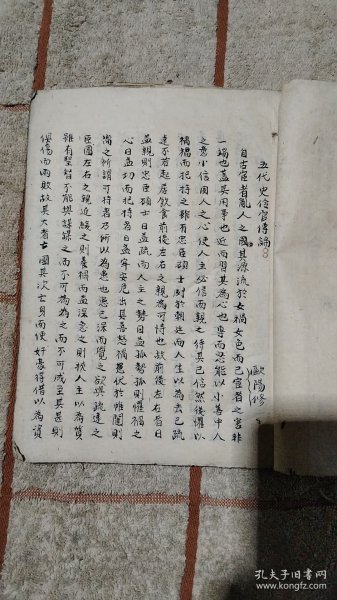 五代史宦官傳論
歐陽修
自古宦者亂人之國其源流於女禍女色而已宦者之害非
一端也蓋其用事也近而習其為心也專而忍能以小善中人
之意小信固人之心使人主必信而親之待其已信然後懼以
禍福而把持之雖有忠臣碩士列於朝廷而人主以為去己疏
遠不若起居飲食前後左右之親為可恃也故前後左右者日
益親則忠臣碩士日益疏而人主之勢日益孤勢孤則懼禍之
心日益切而把持者日益牢安危出其喜怒禍患伏於帷闥則
嚮之所謂可恃者乃所以為患也患已深而覺之欲與疏遠之
臣圖左右之親近緩之則養禍而益深急之則挾人主以為質
雖有聖智不能與謀謀之而不可為為之而不可成至其甚則
俱傷而兩敗故其大者亡國其次亡身而使奸豪得借以為資
孔夫子旧书网